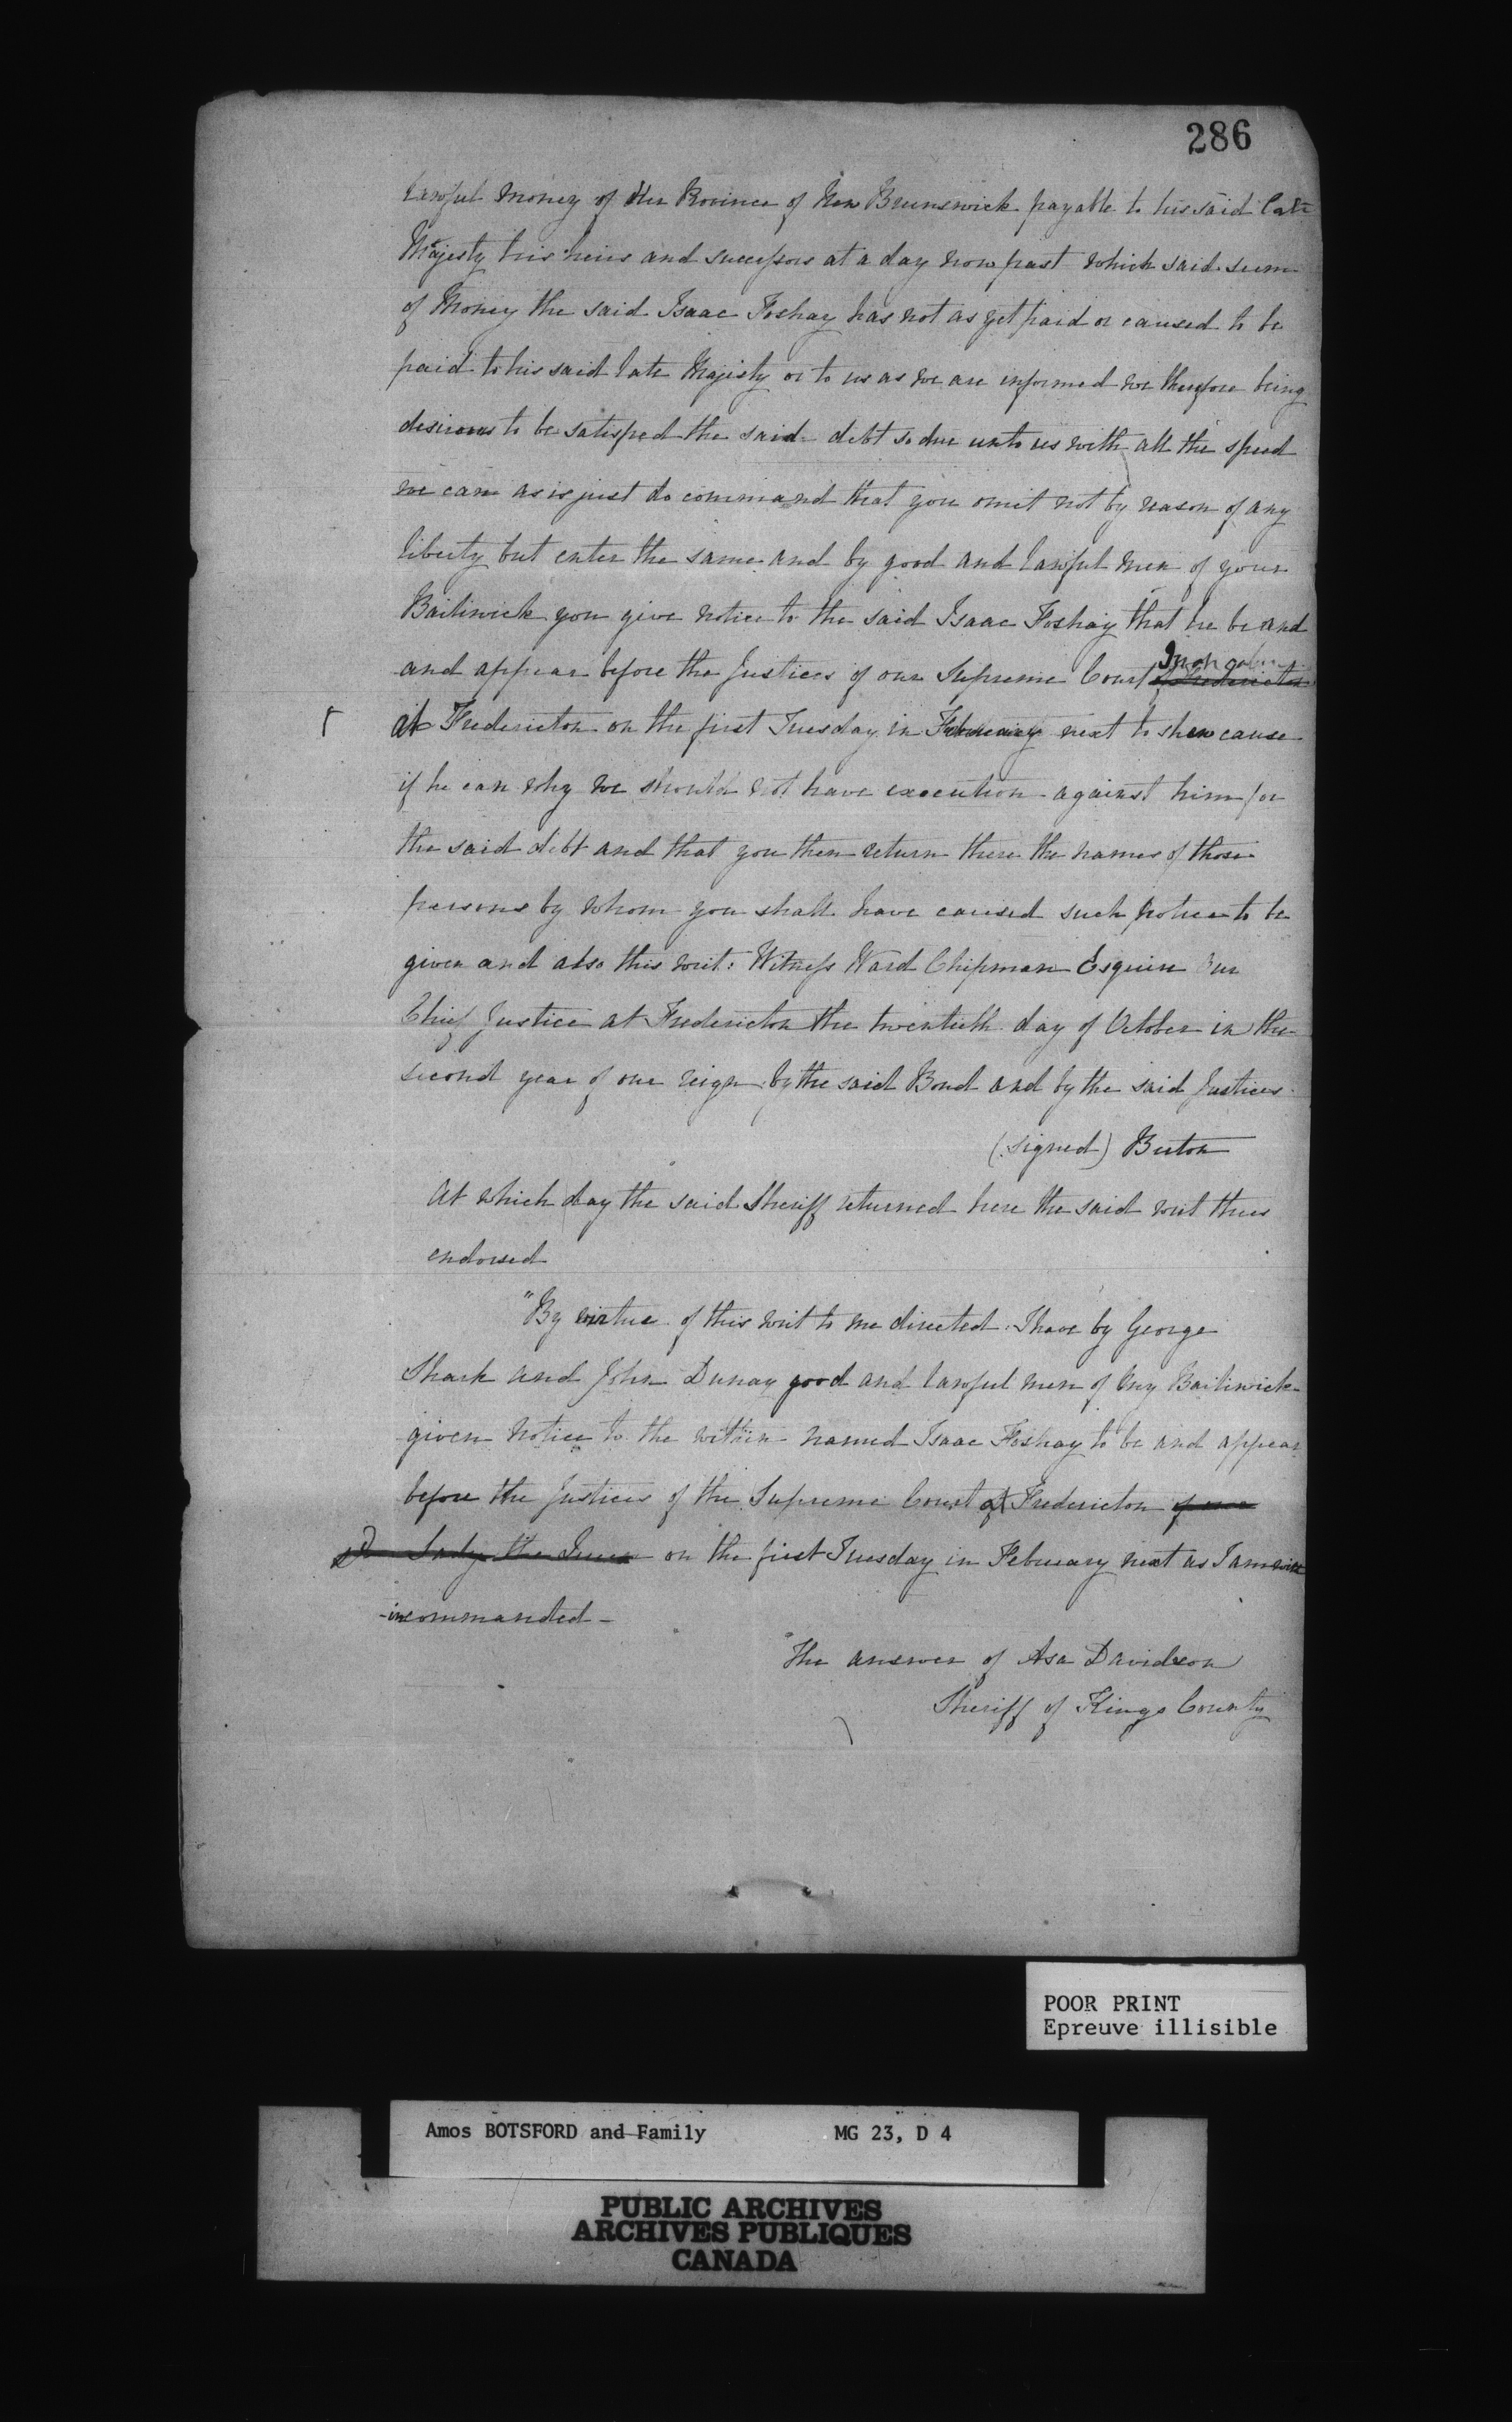 286
Lawful money of the Province of New Brunswick payable to his said late
Majesty his heirs and successors at a day now past which said sum
of money the said Isaac Foshay has not as yet paid or caused to be
paid to his said late Majesty or to us as we are informed we therefore being
desirous to be satisfied the said debt so due unto us with all the speed
we can as is just do command that you omit not by reason of any
liberty but enter the same and by good and lawful men of your
Bailiwick you give notice to the said Isaac Foshay that he be and
and appear before the Justices of our Supreme Court of Fredericton
at Fredericton on the first Tuesday in February next to shew cause
if he can why we should not have execution against him for
the said debt and that you then return there the names of those
persons by whom you shall have caused such notice to be
given and also this writ: Witness Ward Chipman Esquire Our
Chief Justice at Fredericton the twentieth day of October in the
second year of our reign by the said Bond and by the said Justices
(signed)
At which day the said Sheriff returned here the said writ thus
endorsed
"By virtue of this writ to me directed I have by George
and John good and lawful men of my Bailiwick
given notice to the within named Isaac Foshay to be and appear
before the Justices of the Supreme Court at Fredericton
on the first Tuesday in February next as I am with
-in commanded-
"The answer of Asa Davidson
Sheriff of Kings County
POOR PRINT
Epreuve illisible
Amos BOTSFORD and Family MG 23, D 4
PUBLIC ARCHIVES
ARCHIVES PUBLIQUES
CANADA